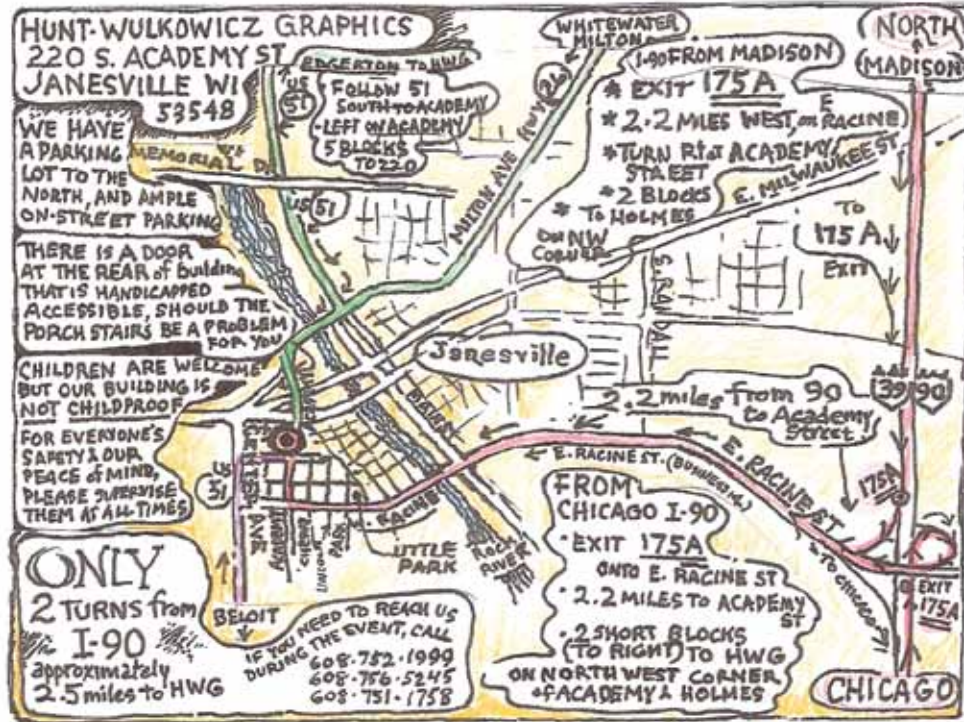 HUNT-WULKOWICZ GRAPHICS
220 S. ACADEMY ST
JANESVILLE WI
53548
WE HAVE
A PARKING
LOT TO THE
NORTH, AND AMPLE
ON-STREET PARKING
THERE IS A DOOR
AT THE REAR of building
THAT IS HANDICAPPED
ACCESSIBLE, SHOULD THE
PORCH STAIRS BE A PROBLEM
FOR YOU
CHILDREN ARE WELCOME
BUT OUR BUILDING IS
NOT CHILDPROOF
FOR EVERYONE'S
SAFETY & OUR
PEACE of MIND,
PLEASE SUPERVISE
THEM AT ALL TIMES
ONLY
2 TURNS from
I-90
approximately
2.5 miles to HWG
EDGERTON TO HWG
FOLLOW 51
SOUTH TO ACADEMY
-LEFT ON ACADEMY
5 BLOCKS
TO 220
US
51
MEMORIAL
US 51
WHITEWATER
MILTON
HWY 26
MILTON AVE
I-90 FROM MADISON
* EXIT 175A
* 2.2 MILES WEST, on E RACINE
* TURN Rt at ACADEMY
STREET
* 2 BLOCKS
* TO HOLMES
ON NW
CORNER
NORTH
(MADISON)
E. MILWAUKEE ST
TO
175A
EXIT
S. RANDALL
Janesville
39 90
2.2 miles from 90
to Academy
Street
175A
E. RACINE ST. (BUSINESS
E. RACINE ST
E. RACINE
TO CHICAGO
US
51
AVE
CHERRY
UNION
PARK
LITTLE
PARK
ROCK
RIVER
BELOIT
IF YOU NEED TO REACH US
DURING THE EVENT, CALL
608-752-1999
608-756-5245
608-751-1758
FROM
CHICAGO I-90
· EXIT 175A
ONTO E. RACINE ST
· 2.2 MILES TO ACADEMY
ST
· 2 SHORT BLOCKS
(TO RIGHT) TO HWG
ON NORTH WEST CORNER
of ACADEMY & HOLMES
EXIT
175A
CHICAGO